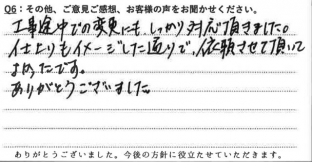 Q6：その他、ご意見ご感想、お客様の声をお聞かせください。
工事途中での変更にも、しっかり対応頂きました。
仕上りもイメージした通りで、依頼させて頂いて
よかったです。
ありがとうございました
ありがとうございました。今後の方針に役立たせていただきます。